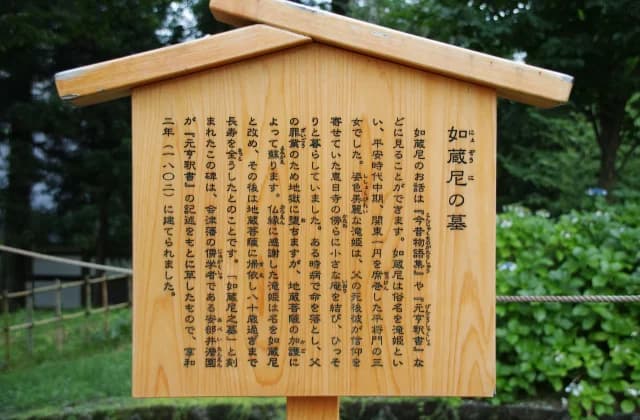 如蔵尼の墓
にょぞうに
如蔵尼のお話は『今昔物語集』や『元亨釈書』な
どに見ることができます。如蔵尼は俗名を滝姫とい
い、平安時代中期、関東一円を席巻した平将門の三
女でした。姿色美麗な滝姫は、父の死後彼が信仰を
寄せていた恵日寺の傍らに小さな庵を結び、ひっそ
りと暮らしていました。ある時病で命を落とし、父
の罪業のため地獄に墮ちますが、地蔵菩薩の加護に
よって蘇ります。仏縁に感謝した滝姫は名を如蔵尼
と改め、その後は地蔵菩薩に帰依し八十歳過ぎまで
長寿を全うしたとのことです。「如蔵尼之墓」と刻
まれたこの碑は、会津藩の儒学者である安部井澹園
が『元亨釈書』の記述をもとに草したもので、享和
二年（一八〇二）に建てられました。